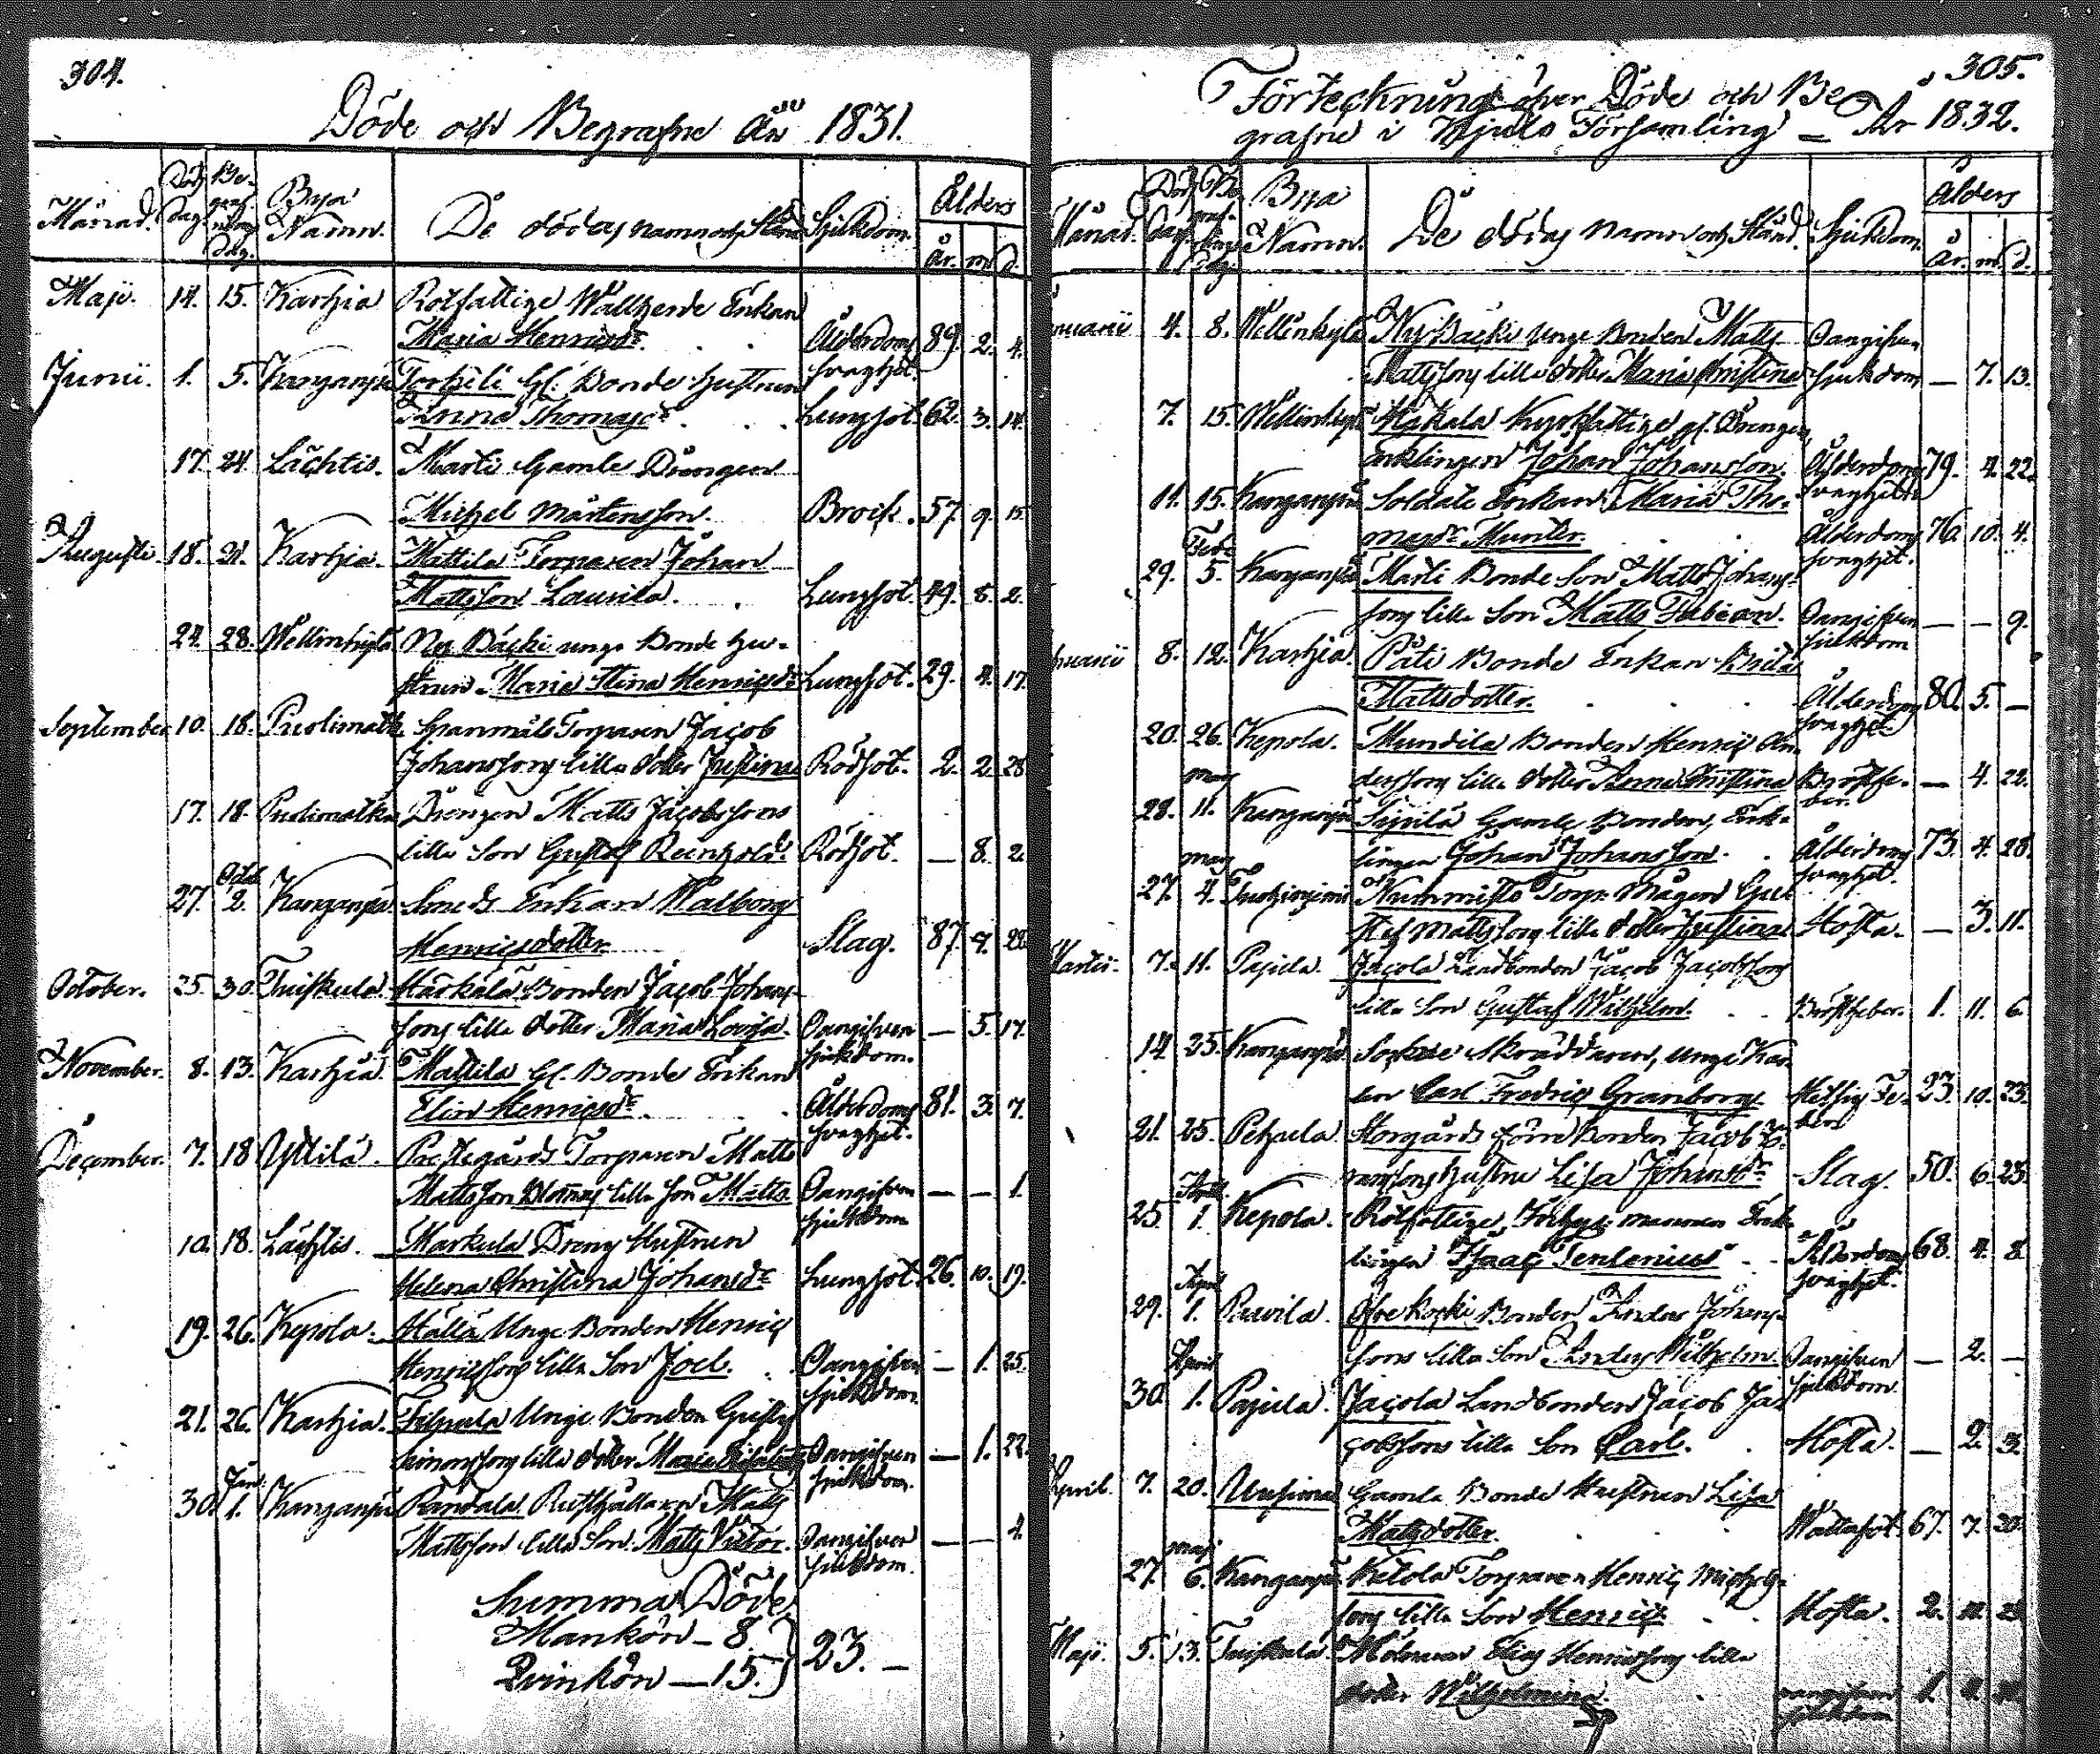 304.
Döde och Begrafne År 1831.
Månad. Död dag. Begrafnings Dag. Bya Namn. De dödas namn och Stånd Sjukdom. Ålders
År. m. d.
Maji. 14. 15. Karhia Rotfattige Wallherde Enkan
Maria Henricsdr. Ålderdoms 89. 2. 4.
svaghet.
Junii. 1. 5. Kanganpä Torheli Gl. Bonde hustrun
Anna Thomasdr. Lungsot. 62. 3. 14.
17. 24. Lächtis. Marti Gamle Drängen
Michel Mårtensson. Bråck. 57. 9. 15.
Augusti. 18. 21. Karhia. Mattila Torparen Johan
Mattsson Laurila. Lungsot. 49. 8. 2.
24. 28. Wellinkylä Ny Bäcki unge Bonde hu-
strun Maria Stina Henricsdr Lungsot. 29. 4. 17.
September 10. 18. Torparen Jacob
Johanssons lilla dotter Justina Rödsot. 2. 2. 28.
17. 18. Drengen Matts Jacobssons
lilla Son Gustaf Reinhold. Rödsot. — 8. 2.
Octob
27. 2. Kanganpä Smeds Enkan Walborg
Henricsdotter. Slag. 87. 28.
October. 25. 30. Tuiskula. Härkälä Bonden Jacob Johans-
sons lilla dotter Maria Lovisa. Oangifven — 5. 17.
sjukdom.
November. 8. 13. Karhia. Mattila Gl. Bonde Enkan
Elin Henricsdr. Ålderdoms 81. 3. 7.
svaghet.
December. 7. 18. Yttilä. Prestegårds Torparen Matts
Mattsson lilla son Matts. Oangifven — — 1.
sjukdom
10. 18. Lächtis. Markula Dreng Hustrun
Helena Christina Johansdr Lungsot. 26. 10. 19.
19. 26. Kepola. Hällä Unge Bonden Henric
Henricssons lilla Son Joel. Oangifven — 1. 25.
sjukdom.
21. 26. Karhia. Filpula Unge Bonden Gustaf
Simonssons lilla dotter Maria Oangifven — 1. 22.
sjukdom.
Jan.
30. 1. Kanganpä Randala Rusthållaren Matts
Mattsson lilla Son Matts Victor. Oangifven — — 4.
sjukdom.
Summa Döde
Mankön — 8.
Qvinkön — 15. } 23. —
305.
Förteckning öfver Döde och Be-
grafne i Kjulo Församling — År 1832.
Månad. Död dag. Begrafnings dag Bya Namn. De dödas Namn och Stånd. Sjukdom. Ålders
År. m. d.
nuarii 4. 8. Wellinkylä Ny Bäcki Unge Bonden Matts Oangifven
Mattssons lilla dotter Maria Christina sjukdom — 7. 13.
7. 15. Wellinkylä Häkala Kyrkfattige gl. Drengen,
Enklingen Johan Johansson. Ålderdoms 79. 4. 22.
svaghet
11. 15. Kanganpä Soldats Enkan Maria Tho-
masdr Munter. Ålderdoms 76. 10. 4.
svaghet.
Febr
29. 5. Kanganpä Marti Bonde Son Matts Johans-
sons lilla Son Matts Fabian. Oangifven — — 9.
sjukdom
bruarii 8. 12. Karhia. Päti Bonde Enkan Brita
Mattsdotter. Ålderdoms 80. 5. —
svaghet.
20. 26. Kepola. Mundila Bonden Henric An-
derssons lilla dotter Anna Christina Bröstfe- — 4. 22.
ber.
mars
28. 11. Kanganpä Sipilä Gamle Bonden, Enk-
lingen Johan Johansson. Ålderdoms 73. 4. 28.
svaghet.
mars
27. 4. Nummisto Torp. Mågen Gu-
staf Mattssons lilla dotter Justina Hosta. — 3. 11.
Martii. 7. 11. Pajula. Jacola Landbonden Jacob Jacobssons
lilla Son Gustaf Wilhelm. Bröstfeber. 1. 11. 6.
14. 25. Kanganpä Sockne Skräddaren, Unge Kar-
len Carl Fredric Granborg. Hetsig Fe- 23. 10. 23.
ber
21. 25. Pehula Storgårds förre Bonden Jacob
hustru Lisa Johansdr Slag. 50. 6. 23.
April.
25. 1. Kepola. Rotfattige, Enk-
lingen Isaac Tenlenius Ålderdoms 68. 4. 8.
svaghet.
April
29. 1. Paavila. Öfre Koski Bonden Anders Johans-
sons lilla Son Anders Wilhelm. Oangifven — 2. —
sjukdom.
April
30. 1. Pajula. Jacola Landbonden Jacob Ja-
cobssons lilla Son Carl. Hosta. — 2. 3.
April. 7. 20. Gamla Bonde Hustrun Lisa
Matsdotter. Wattusot. 67. 7. 20.
maji
27. 6. Kanganpä Ketola Torparen Henric Michels-
sons lilla Son Henric. Hosta. 2.
Maji. 5. 13. Tuiskula. Elias Henricssons lilla
dotter Wilhelmina. oangifven 1.
sjukdom